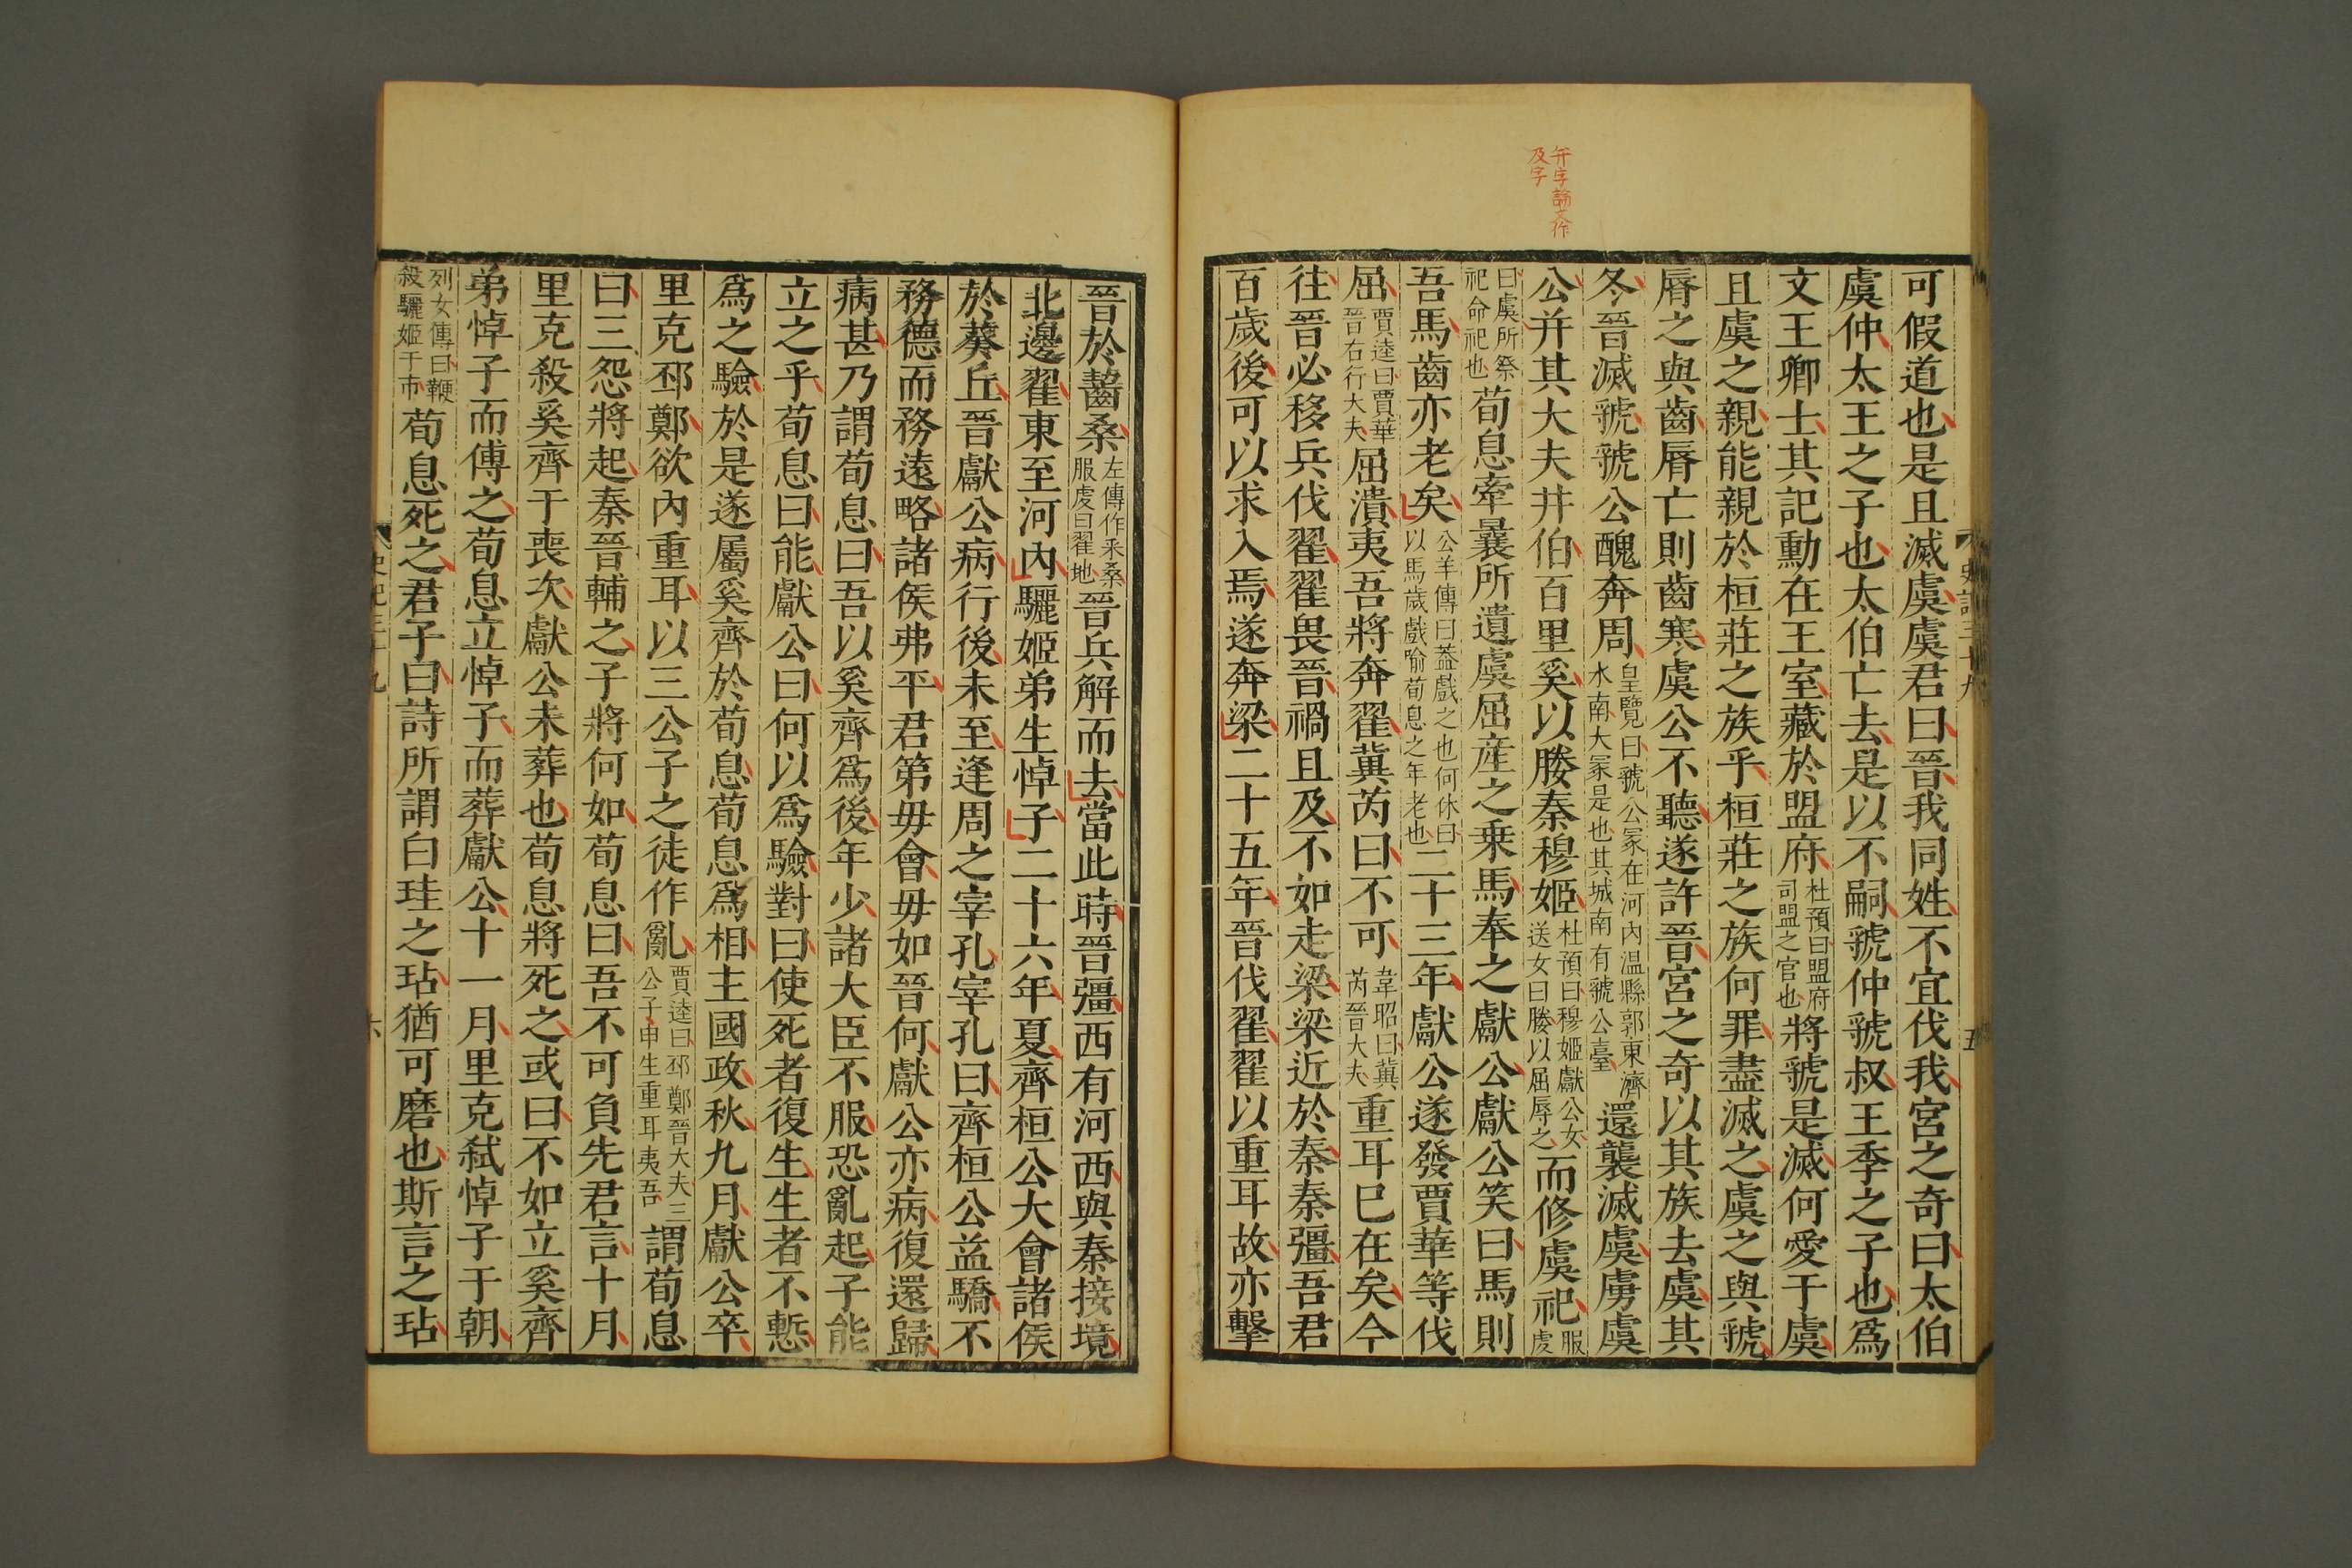 并字論文作
及字
可假道也是且滅虞虞君曰晉我同姓不宜伐我宮之奇曰太伯
虞仲太王之子也太伯亡去是以不嗣虢仲虢叔王季之子也爲
文王卿士其記勳在王室藏於盟府杜預曰盟府司盟之官也將虢是滅何愛于虞
且虞之親能親於桓莊之族乎桓莊之族何罪盡滅之虞之與虢
脣之與齒脣亡則齒寒虞公不聽遂許晉宮之奇以其族去虞其
冬晉滅虢虢公醜奔周皇覽曰虢公冢在河內温縣郭東濟水南大冢是也其城南有虢公臺還襲滅虞虜虞
公并其大夫井伯百里奚以媵秦穆姬杜預曰穆姬獻公女送女曰媵以屈辱之而修虞祀服虔
曰虞所祭祀命祀也荀息牽曩所遺虞屈産之乗馬奉之獻公獻公笑曰馬則
吾馬齒亦老矣公羊傳曰蓋戲之也何休曰以馬歲戲喻荀息之年老也二十三年獻公遂發賈華等伐
屈賈逵曰賈華晉右行大夫屈潰夷吾將奔翟冀芮曰不可韋昭曰冀芮晉大夫重耳已在矣今
往晉必移兵伐翟翟畏晉禍且及不如走梁梁近於秦秦彊吾君
百歲後可以求入焉遂奔梁二十五年晉伐翟翟以重耳故亦擊
史記三十九 五
晉於齧桑左傳作采桑服虔曰翟地晉兵解而去當此時晉彊西有河西與秦接境
北邊翟東至河內驪姬弟生悼子二十六年夏齊桓公大會諸侯
於葵丘晉獻公病行後未至逢周之宰孔宰孔曰齊桓公益驕不
務德而務遠略諸侯弗平君第毋會毋如晉何獻公亦病復還歸
病甚乃謂荀息曰吾以奚齊爲後年少諸大臣不服恐亂起子能
立之乎荀息曰能獻公曰何以爲驗對曰使死者復生生者不慙
爲之驗於是遂屬奚齊於荀息荀息爲相主國政秋九月獻公卒
里克邳鄭欲內重耳以三公子之徒作亂賈逵曰邳鄭晉大夫三公子申生重耳夷吾謂荀息
曰三怨將起秦晉輔之子將何如荀息曰吾不可負先君言十月
里克殺奚齊于喪次獻公未葬也荀息將死之或曰不如立奚齊
弟悼子而傅之荀息立悼子而葬獻公十一月里克弑悼子于朝
列女傳曰鞭殺驪姬于市荀息死之君子曰詩所謂白珪之玷猶可磨也斯言之玷
史記三十九 六